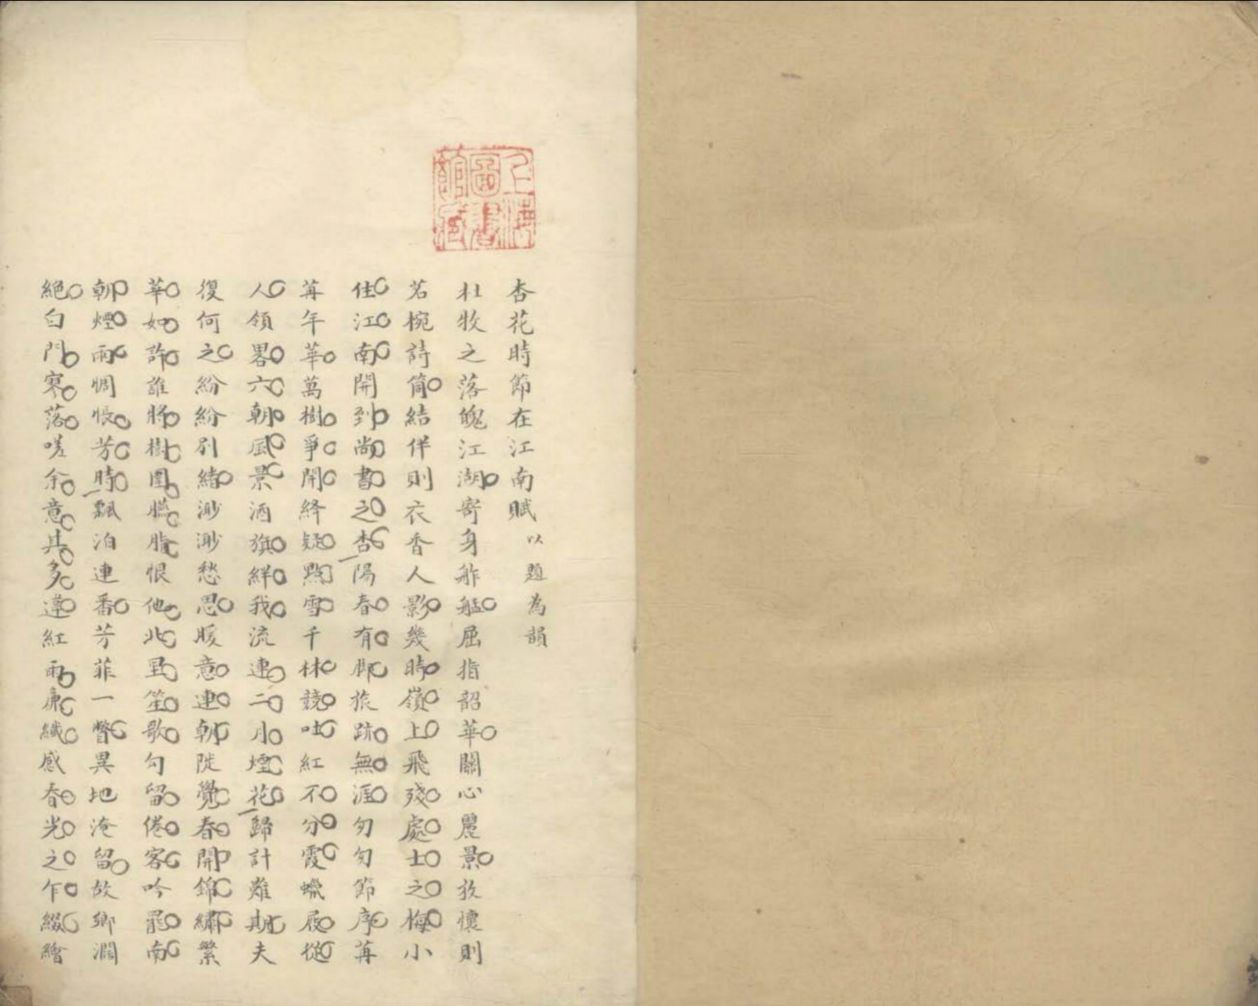 上海圖書館藏
杏花時節在江南賦以題為韻
杜牧之落魄江湖寄身舴艋屈指韶華關心麗景放懷則
茗椀詩筒結伴則衣香人影幾時嶺上飛殘處士之梅小
住江南開到尚書之杏陽春有腳旅跡無涯匆匆節序苒
苒年華萬樹爭開絳疑點雪千林競吐紅不分霞蠟屐從
人領畧六朝風景酒旗絆我流連二月煙花歸計難期夫
復何之紛紛別緒渺渺愁思暖意連朝陡覺春開錦繡繁
華如許誰將樹圍臙脂恨他北里笙歌句留倦客吟罷南
朝煙雨惆悵芳時飄泊連番芳菲一瞥異地淹留故鄉濶
絕白門寒落嗟余意其多違紅雨廉纖感春光之乍綴繪